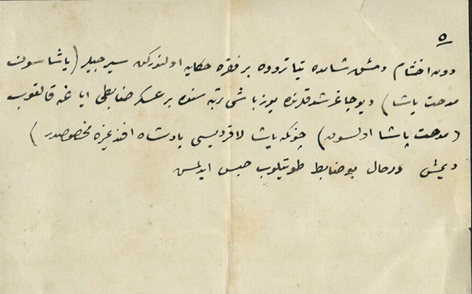 ٥
دون اخشام دمشق شامده تياتروده بر فقره حكايه اولنوركن سيرجيلر (ياشاسون
مدحت پاشا) ديو چاغرشدقلرنده يوزباشى رتبه سنده بر عسكر ضابطى اياغه قالقوب
(مدحت پاشا اولسون) چونكه ياشا لاقرديسى پادشاه افندمزه مخصوصدر)
ديمش درحال بو ضابط طوتيلوب حبس ايدلمش